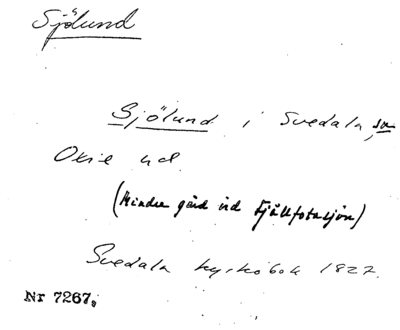 Sjölund
Sjölund i Svedala sn
Oxie hd
(Mindre gård vid Fjällfotasjön)
Svedala kyrkobok 1827.
Nr 7267.